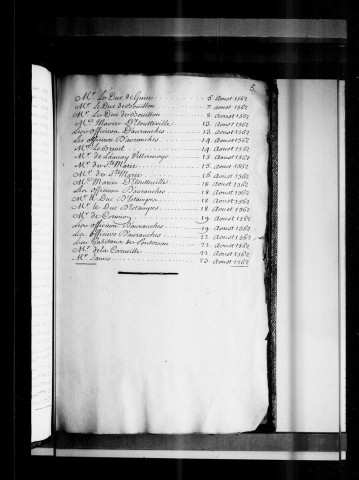 5.
Mr. Le Duc de Guise 5 Aoust 1562
Mr. Le Duc de Bouillon 7 Aoust 1562
Mr. Le Duc de Bouillon 8 Aoust 1562
Mrs. Mavier D'Estoutteville 13 Aoust 1562
Les officiers D'avranches 13 Aoust 1562
Les officiers D'avranches 14 Aoust 1562
Mr. Le Breuil 14 Aoust 1562
Mr. de Launay Villermoys 15 Aoust 1562
Mr. de Ste. Marie 15 Aoust 1562
Mr. de Ste. Marie 16 Aoust 1562
Mrs. Marie D'Estoutteville 18 Aoust 1562
Les officiers D'avranches 18 Aoust 1562
Mr. le Duc D'estampes 18 Aoust 1562
Mr. le Duc D'estampes 18 Aoust 1562
Mr. de 19 Aoust 1562
Les officiers D'avranches 19 Aoust 1562
Les officiers D'avranches 22 Aoust 1562
Les habitans de Pontorson 22 Aoust 1562
Mr. de la Corneille 22 Aoust 1562
Mr. James 23 Aoust 1562